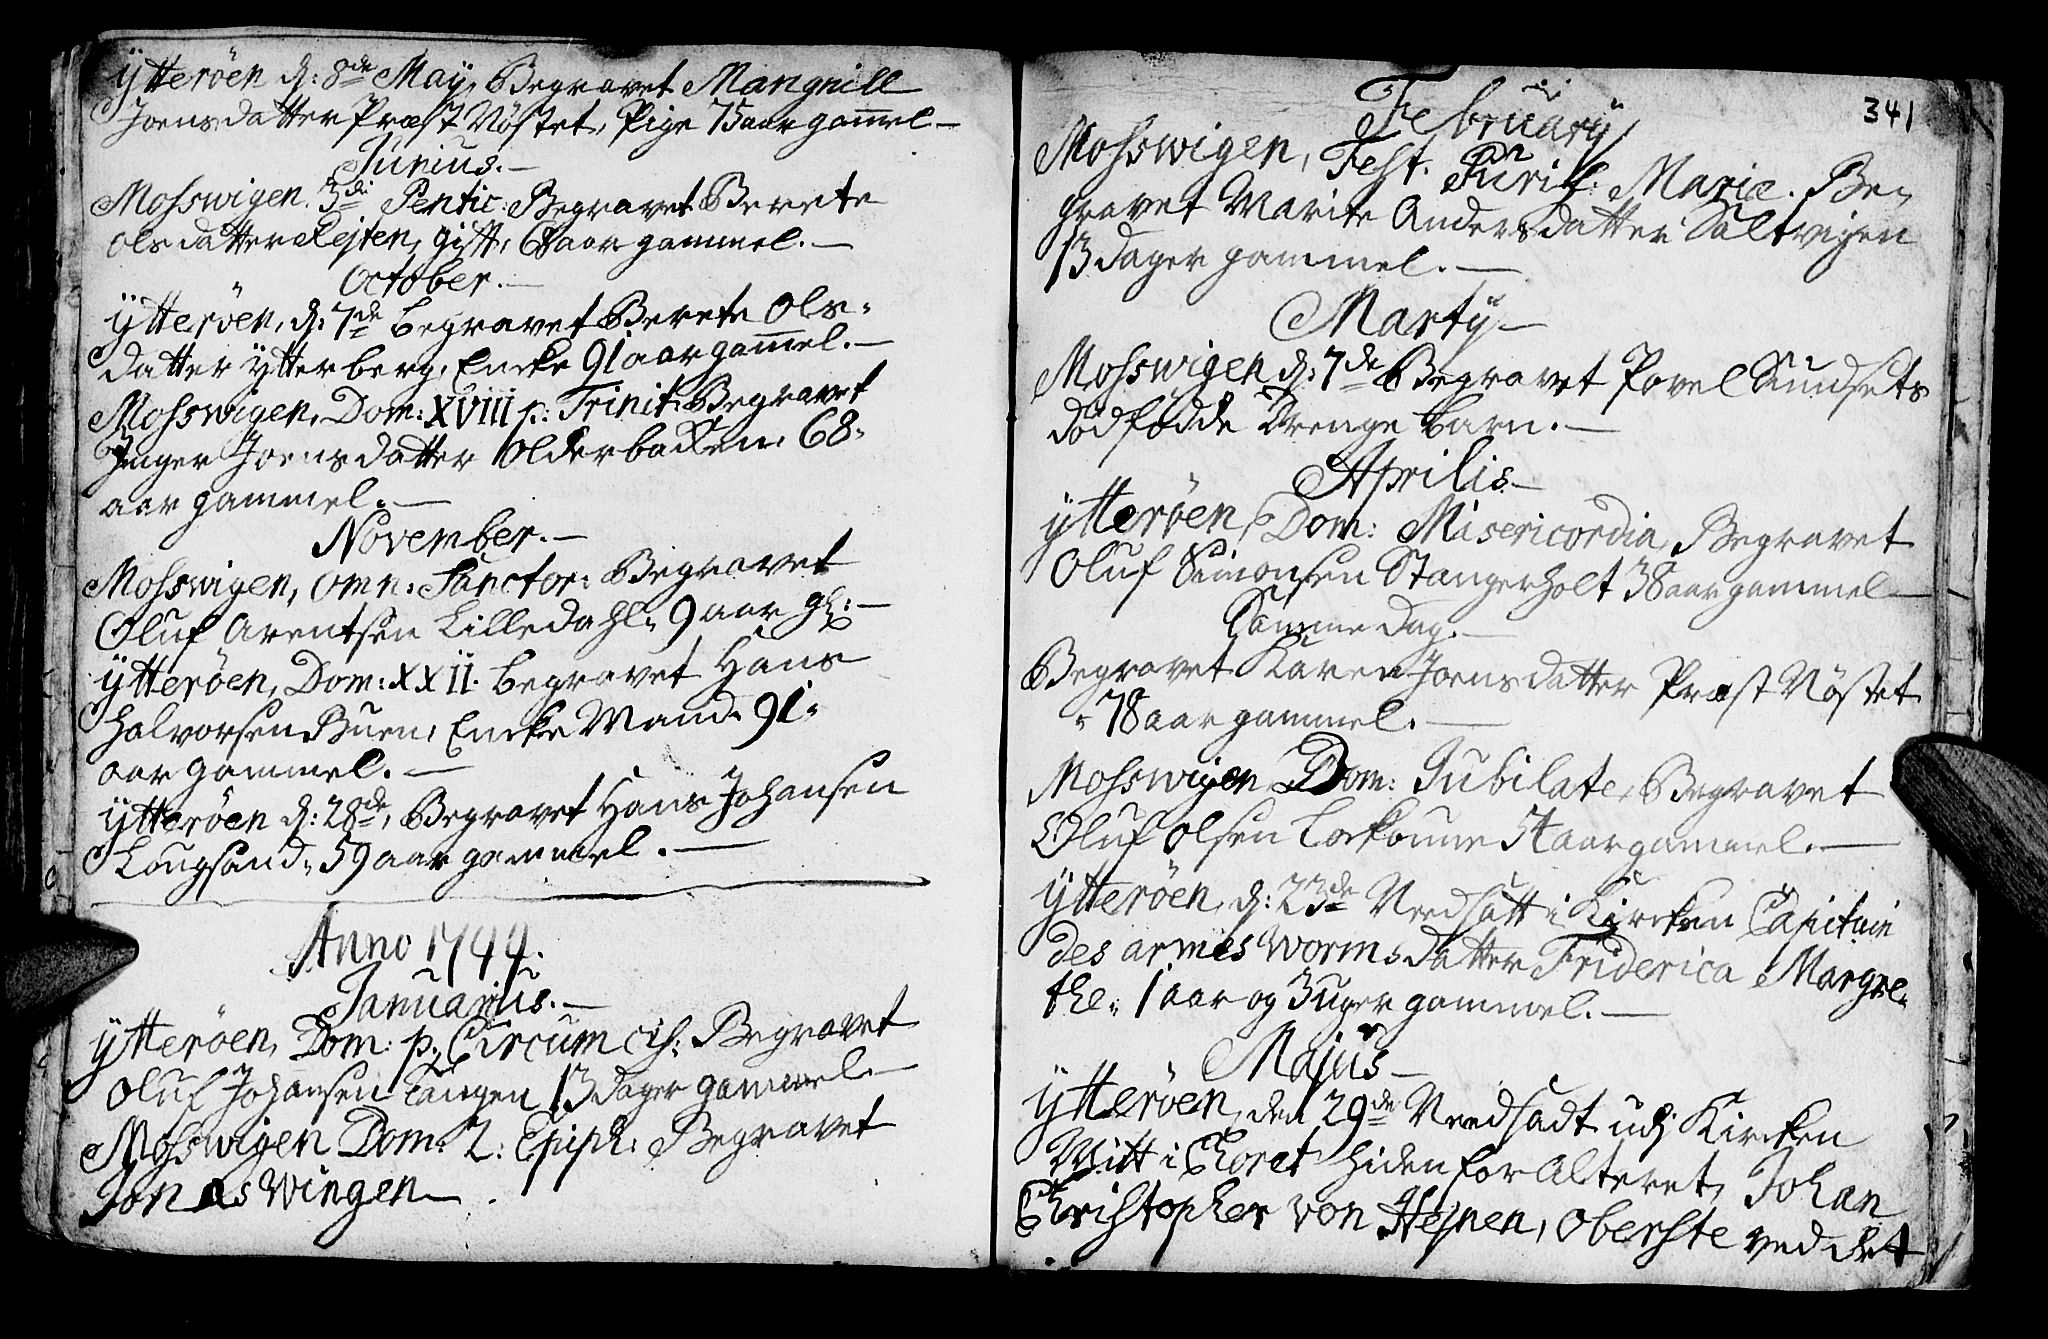 Ytteröen d: 8de Maÿ, Begravet Mangnill
Joensdatter Præst Nöstet, Pige 75 aar gam̅el. —
Junius. —
Mosswigen. 3die Pentic: Begravet Berete
Olsdatter Rejten, gift, 68 aar gammel. —
October. —
Ytteröen, d: 7de begravet Berete Ols-
datter Ytterberg, Encke 91 aar gam̅el. —
Mosswigen, Dom: XVIII p: Trinit. Begravet
Inger Joensdatter Olderbacken. 68.
aar gammel. —
November. —
Mosswigen, Omn: Sanctor: Begravet
Oluf Arentsen Lilledahl. 9 aar gl: —
Ytteröen, Dom: XXII. begravet Hans
Halvorsen Buen, Encke Mand. 91.
aar gammel. —
Ytteröen d: 28de, Begravet Hans Johansen
Lougsand. 59 aar gammel. —
Anno 1744.
Januarius. —
Ytteröen, Dom: p. Circumcis: Begravet
Oluf Johansen Tangen 13 dager gammel —
Mosswigen Dom: 2: Epiph: Begravet
Jonas Wingen —
341
Februarÿ
Mosswigen, Fest. Purif: Mariæ. Be-
gravet Marite Andersdatter Saltvigen
13 dager gammel. —
Martÿ —
Mosswigen d: 7de Begravet Povel Sundsets
dödfödde Drenge barn. —
Aprilis —
Ytteröen, Dom: Misericordia, Begravet
Oluf Simonsen Stangerholt 38 aar gammel —
Samme Dag. —
Begravet Karen Joensdatter Præst Nöstet
78 aar gammel. —
Mosswigen Dom: Jubilate, Begravet
Oluf Olsen 54 aar gammel. —
Ytteröen, d: 23de Needsatt i Kircken Capitain
des armes Worms datter Friderica Margre-
the. 1 aar og 3 uger gammel. —
Majus —
Ytteröen, den 29de Needsadt udj Kircken
Mitt i Choret hiden for Alteret, Johan
Christopher von Hejnen, Oberste ved det